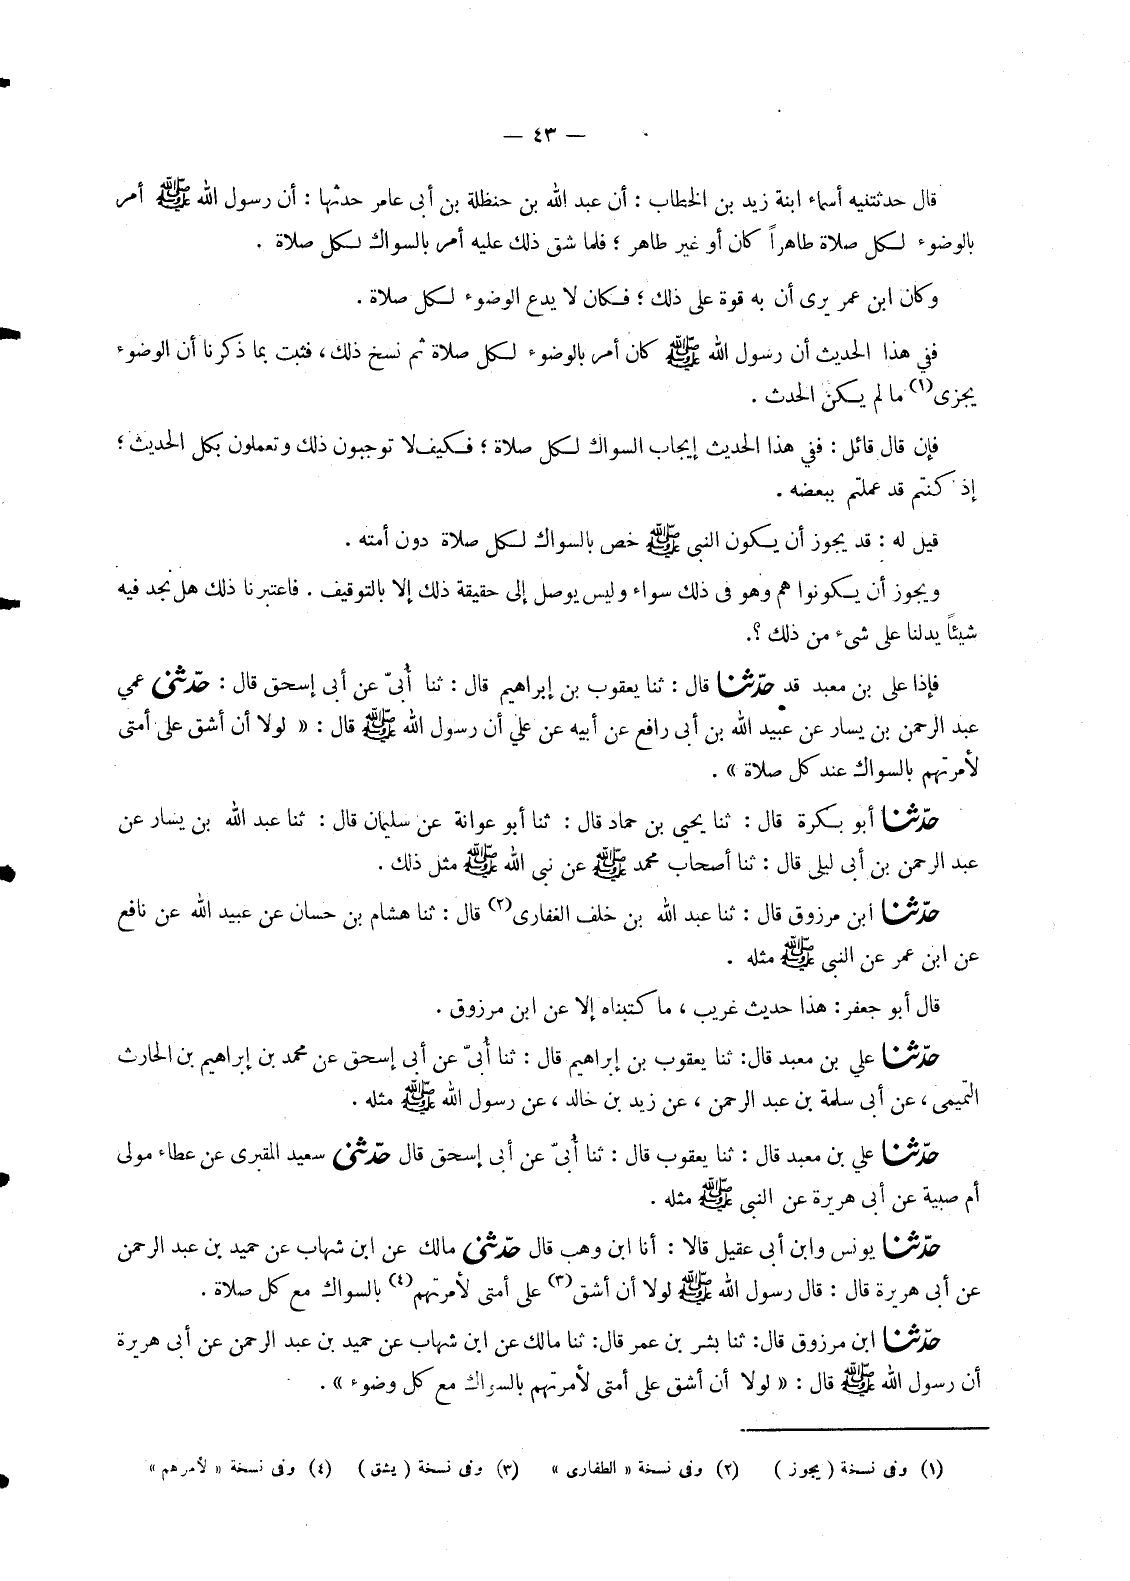 — ٤٣ —
قال حدثتنيه أسماء ابنة زيد بن الخطاب : أن عبد الله بن حنظلة بن أبى عامر حدثها : أن رسول الله ﷺ أمر
بالوضوء لكل صلاة طاهراً كان أو غير طاهر ؛ فلما شق ذلك عليه أمر بالسواك لكل صلاة .
وكان ابن عمر يرى أن به قوة على ذلك ؛ فكان لا يدع الوضوء لكل صلاة .
ففي هذا الحديث أن رسول الله ﷺ كان أمر بالوضوء لكل صلاة ثم نسخ ذلك ، فثبت بما ذكرنا أن الوضوء
يجزى(١) ما لم يكن الحدث .
فإن قال قائل : ففي هذا الحديث إيجاب السواك لكل صلاة ؛ فكيف لا توجبون ذلك وتعملون بكل الحديث ؛
إذ كنتم قد عملتم ببعضه .
قيل له : قد يجوز أن يكون النبى ﷺ خص بالسواك لكل صلاة دون أمته .
ويجوز أن يكونوا هم وهو فى ذلك سواء وليس يوصل إلى حقيقة ذلك إلا بالتوقيف . فاعتبرنا ذلك هل نجد فيه
شيئاً يدلنا على شىء من ذلك ؟.
فإذا على بن معبد قد حدّثنا قال : ثنا يعقوب بن إبراهيم قال : ثنا أُبىّ عن أبى إسحق قال : حدّثنى عمي
عبد الرحمن بن يسار عن عبيد الله بن أبى رافع عن أبيه عن علي أن رسول الله ﷺ قال : « لولا أن أشق على أمتى
لأمرتهم بالسواك عند كل صلاة » .
حدّثنا أبو بكرة قال : ثنا يحيي بن حماد قال : ثنا أبو عوانة عن سليمان قال : ثنا عبد الله بن يسار عن
عبد الرحمن بن أبى ليلى قال : ثنا أصحاب محمد ﷺ عن نبى الله ﷺ مثل ذلك .
حدّثنا ابن مرزوق قال : ثنا عبد الله بن خلف الغفارى(٢) قال : ثنا هشام بن حسان عن عبيد الله عن نافع
عن ابن عمر عن النبى ﷺ مثله .
قال أبو جعفر : هذا حديث غريب ، ما كتبناه إلا عن ابن مرزوق .
حدّثنا علي بن معبد قال: ثنا يعقوب بن إبراهيم قال : ثنا أُبىّ عن أبى إسحق عن محمد بن إبراهيم بن الحارث
التميمى ، عن أبى سلمة بن عبد الرحمن ، عن زيد بن خالد ، عن رسول الله ﷺ مثله .
حدّثنا علي بن معبد قال : ثنا يعقوب قال : ثنا أُبىّ عن أبى إسحق قال حدّثنى سعيد المقبرى عن عطاء مولى
أم صبية عن أبى هريرة عن النبي ﷺ مثله .
حدّثنا يونس وابن أبى عقيل قالا : أنا ابن وهب قال حدّثنى مالك عن ابن شهاب عن حميد بن عبد الرحمن
عن أبى هريرة قال : قال رسول الله ﷺ لولا أن أشق(٣) على أمتى لأمرتهم(٤) بالسواك مع كل صلاة .
حدّثنا ابن مرزوق قال: ثنا بشر بن عمر قال: ثنا مالك عن ابن شهاب عن حميد بن عبد الرحمن عن أبى هريرة
أن رسول الله ﷺ قال : « لولا أن أشق على أمتى لأمرتهم بالسواك مع كل وضوء » .
(١) وفى نسخة ( يجوز ) (٢) وفى نسخة « الطفارى » (٣) وفى نسخة ( يشق ) (٤) وفى نسخة « لأمرهم »